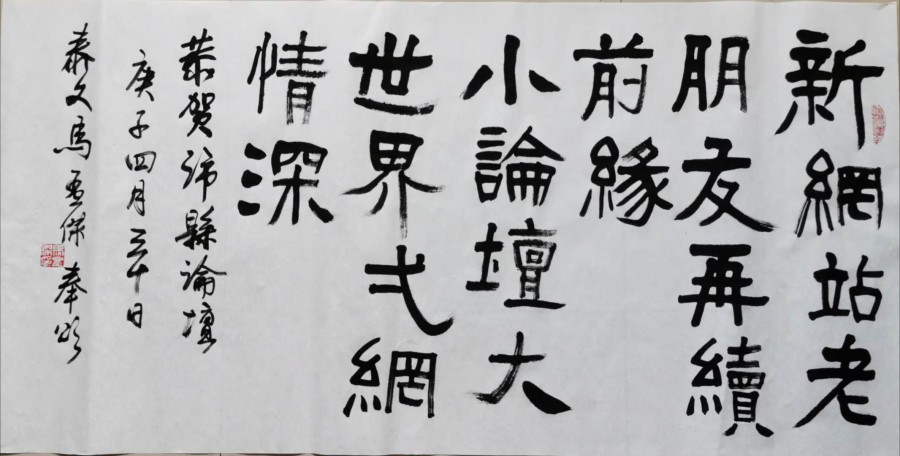 新網站老
朋友再續
前緣
小論壇大
世界弌網
情深
恭賀沛縣論壇
庚子四月三十日
泰文馬孟傑 奉頌